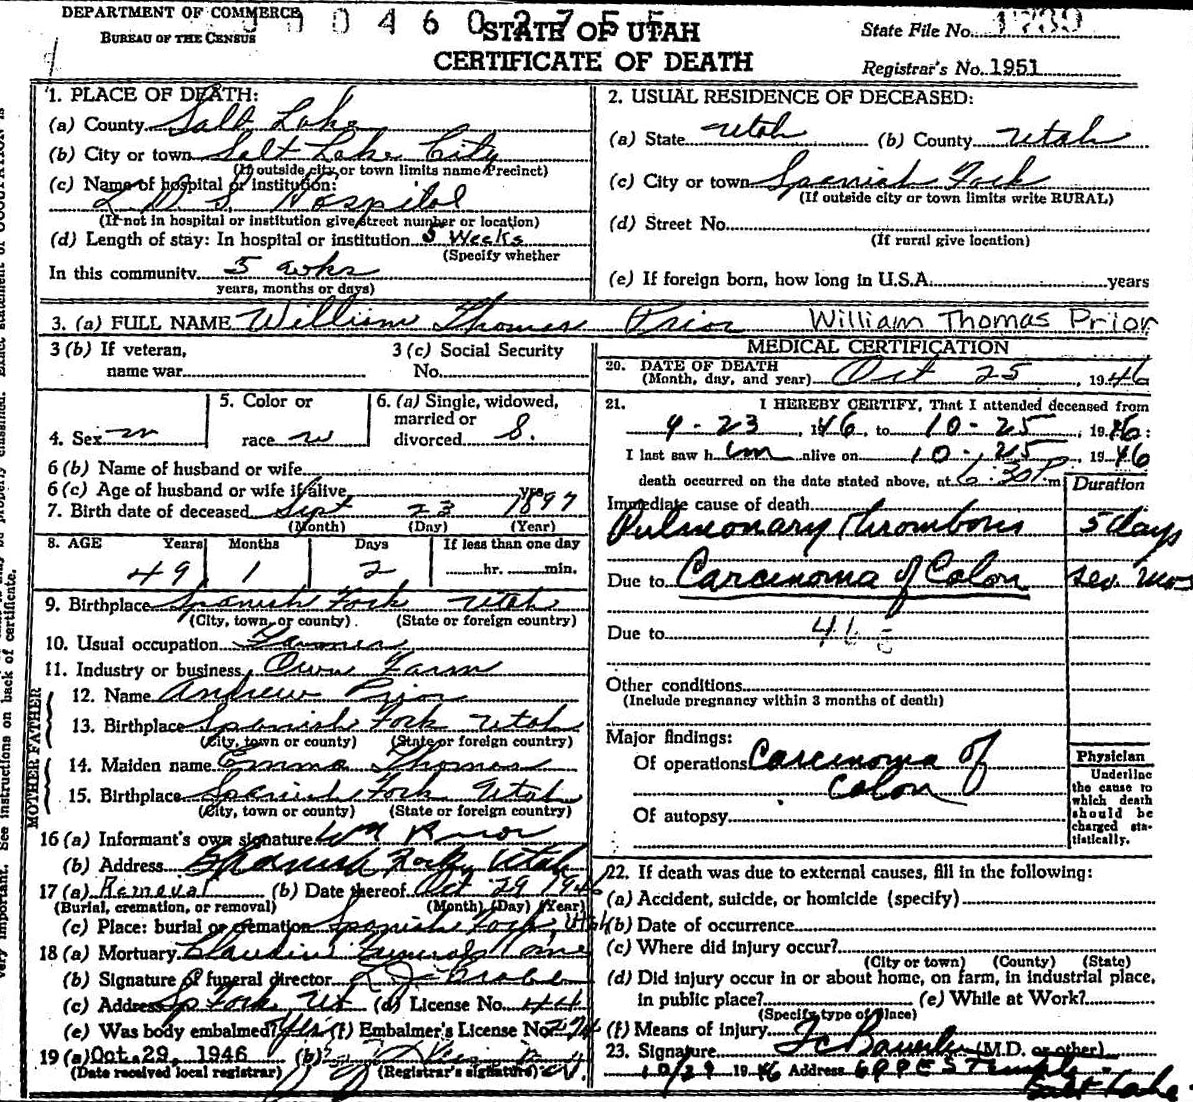 DEPARTMENT OF COMMERCE
BUREAU OF THE CENSUS
STATE OF UTAH
CERTIFICATE OF DEATH
State File No.
Registrar's No. 1951
1. PLACE OF DEATH:
(a) County Salt Lake
(b) City or town Salt Lake City
(If outside city or town limits name Precinct)
(c) Name of hospital or institution:
L.D.S. Hospital
(If not in hospital or institution give street number or location)
(d) Length of stay: In hospital or institution 5 Weeks
(Specify whether
In this community 5 wks
years, months or days)
2. USUAL RESIDENCE OF DECEASED:
(a) State Utah (b) County Utah
(c) City or town Spanish Fork
(If outside city or town limits write RURAL)
(d) Street No.
(If rural give location)
(e) If foreign born, how long in U.S.A. years
3. (a) FULL NAME William Thomas Prior William Thomas Prior
3 (b) If veteran,
name war
3 (c) Social Security
No.
4. Sex m
5. Color or
race w
6. (a) Single, widowed,
married or
divorced S.
6 (b) Name of husband or wife
6 (c) Age of husband or wife if alive yrs
7. Birth date of deceased Sept 23 1897
(Month) (Day) (Year)
8. AGE Years Months Days If less than one day
49 1 2 hr. min.
9. Birthplace Spanish Fork Utah
(City, town, or county) (State or foreign country)
10. Usual occupation Farmer
11. Industry or business Own Farm
FATHER
12. Name Andrew Prior
13. Birthplace Spanish Fork Utah
(City, town or county) (State or foreign country)
MOTHER
14. Maiden name Emma Thomas
15. Birthplace Spanish Fork Utah
(City, town or county) (State or foreign country)
16 (a) Informant's own signature Wm Prior
(b) Address Spanish Fork, Utah
17 (a) Removal (b) Date thereof Oct 29 1946
(Burial, cremation, or removal) (Month) (Day) (Year)
(c) Place: burial or cremation Spanish Fork, Utah
18 (a) Mortuary Claudin Funeral Home
(b) Signature of funeral director
(c) Address Sp Fork, Ut (d) License No. 44
(e) Was body embalmed? Yes (f) Embalmer's License No.
19 (a) Oct. 29, 1946 (b)
(Date received local registrar) (Registrar's signature)
MEDICAL CERTIFICATION
20. DATE OF DEATH
(Month, day, and year) Oct 25, 1946
21. I HEREBY CERTIFY, That I attended deceased from
9-23, 1946, to 10-25, 1946:
I last saw him alive on 10-25, 1946
death occurred on the date stated above, at 6:30 P.m
Duration
Immediate cause of death
Pulmonary thrombosis 5 days
Due to Carcinoma of Colon sev. mos
Due to 46E
Other conditions
(Include pregnancy within 3 months of death)
Major findings:
Of operations Carcinoma of
Colon
Of autopsy
Physician
Underline
the cause to
which death
should be
charged sta-
tistically.
22. If death was due to external causes, fill in the following:
(a) Accident, suicide, or homicide (specify)
(b) Date of occurrence
(c) Where did injury occur?
(City or town) (County) (State)
(d) Did injury occur in or about home, on farm, in industrial place,
in public place? (e) While at Work?
(Specify type of place)
(f) Means of injury
23. Signature (M.D. or other)
10/29 1946 Address 699 E S Temple
Salt Lake
very important. See instructions on back of certificate.